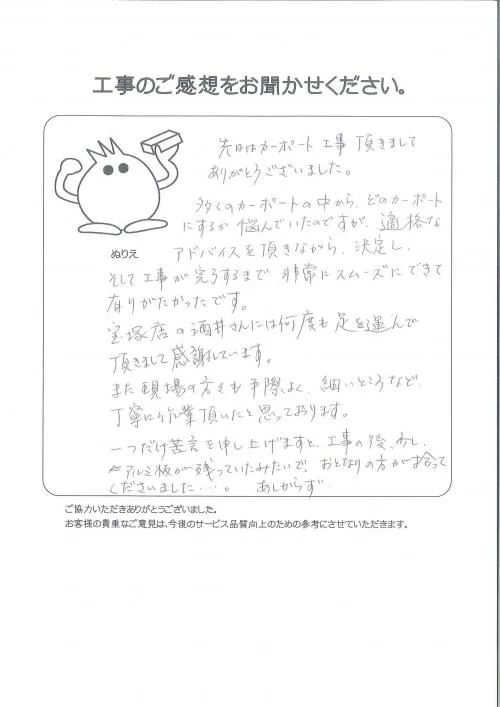 工事のご感想をお聞かせください。
先日はカーポート工事頂きまして
ありがとうございました。
多くのカーポートの中から、どのカーポート
にするか悩んでいたのですが、適格な
アドバイスを頂きながら、決定し、
ぬりえ
そして工事が完了するまで非常にスムーズにできて
有りがたかったです。
宝塚店の酒井さんには何度も足を運んで
頂きまして感謝しています。
また現場の方々も手際よく、細いところなど、
丁寧に作業頂いたと思っております。
一つだけ苦言を申し上げますと、工事の後、少し、
アルミ板が残っていたみたいで、おとなりの方が拾って
くださいました……。 あしからず
ご協力いただきありがとうございました。
お客様の貴重なご意見は、今後のサービス品質向上のための参考にさせていただきます。